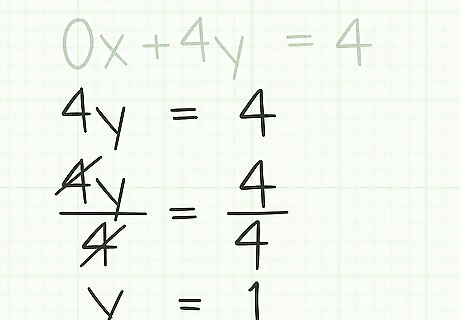 0x + 4y = 4
4y = 4
4y/4 = 4/4
y = 1